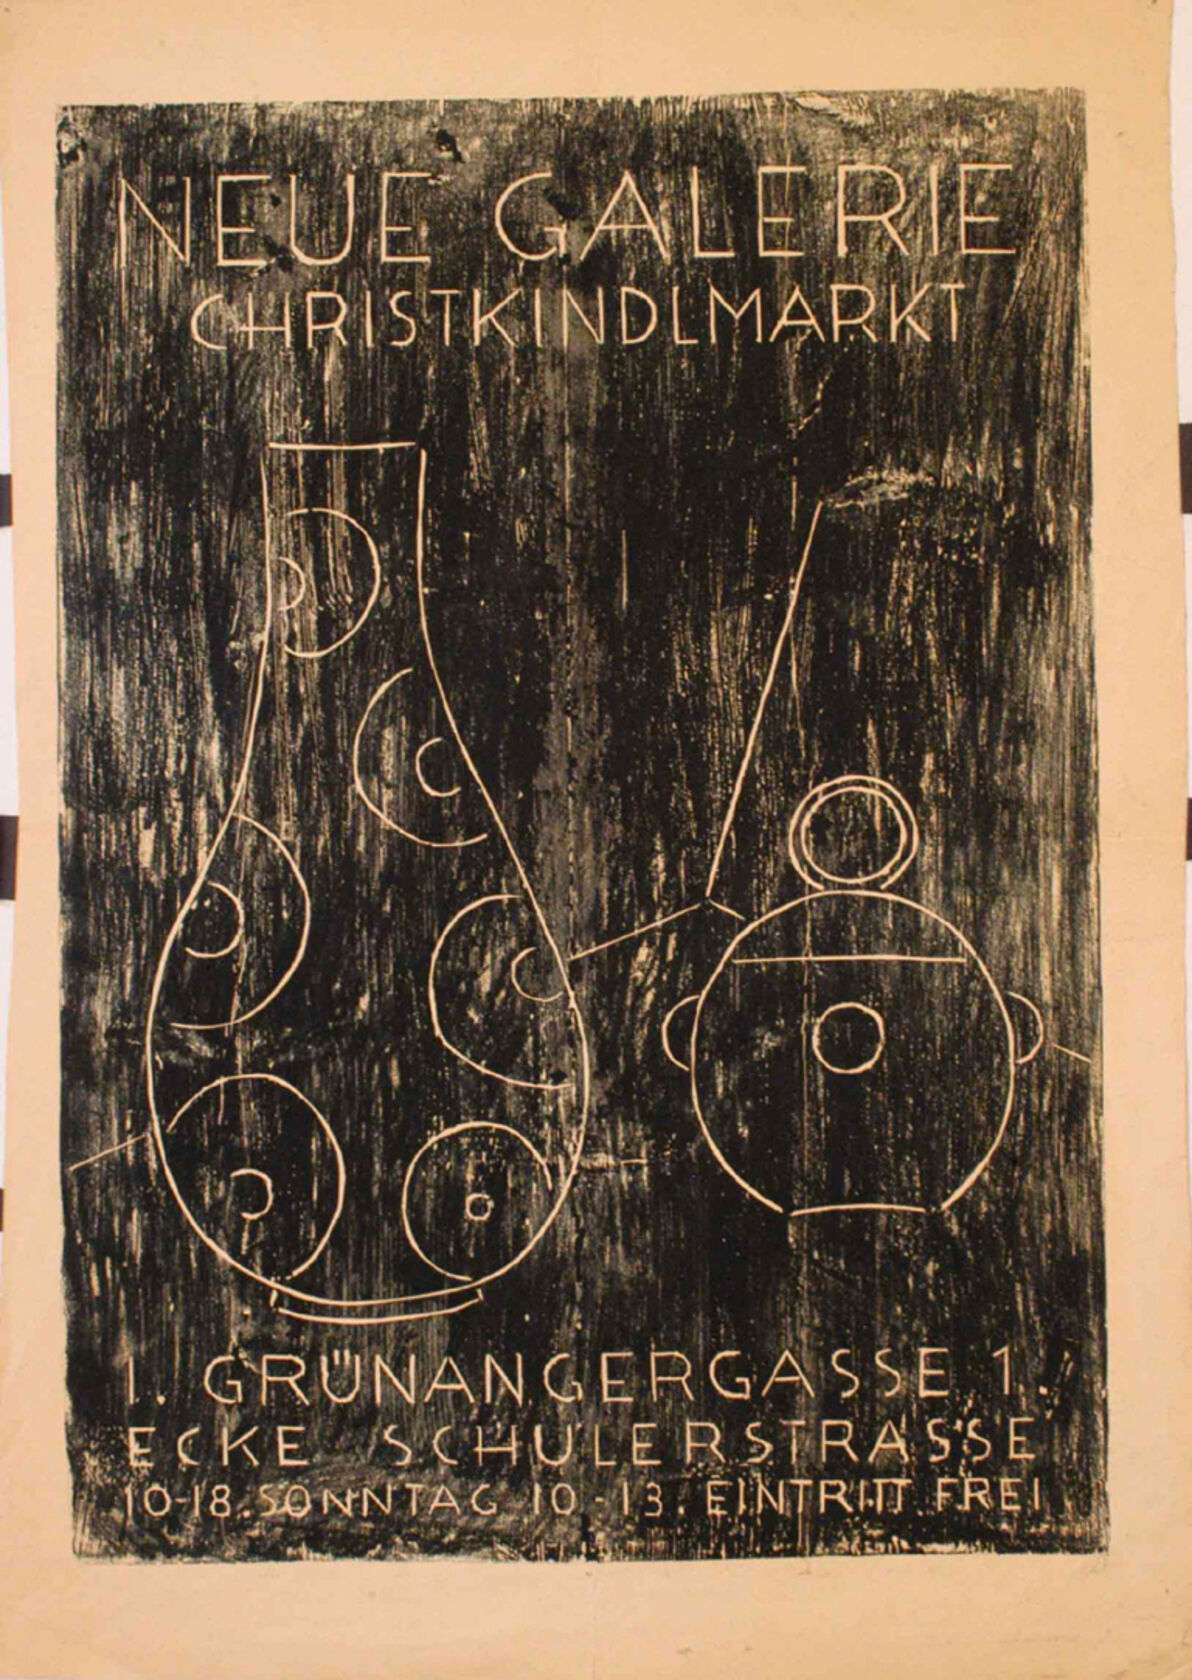 NEUE GALERIE
CHRISTKINDLMARKT
I. GRÜNANGERGASSE 1.
ECKE SCHULERSTRASSE
10-18. SONNTAG 10-13. EINTRITT FREI